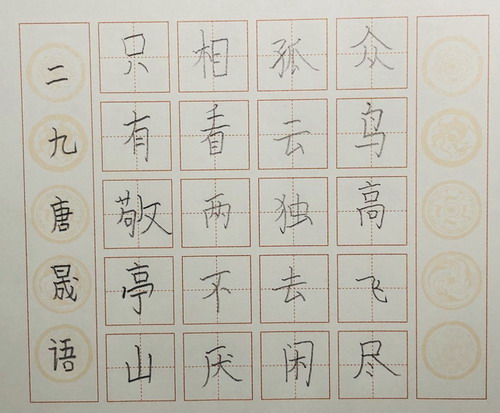 众鸟高飞尽
孤云独去闲
相看两不厌
只有敬亭山
二九唐晟语